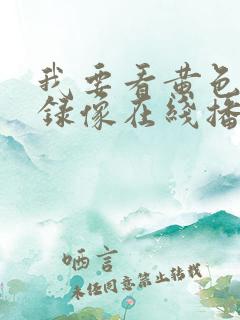 我要看黄色
录像在线播
哂言
未经同意禁止转载